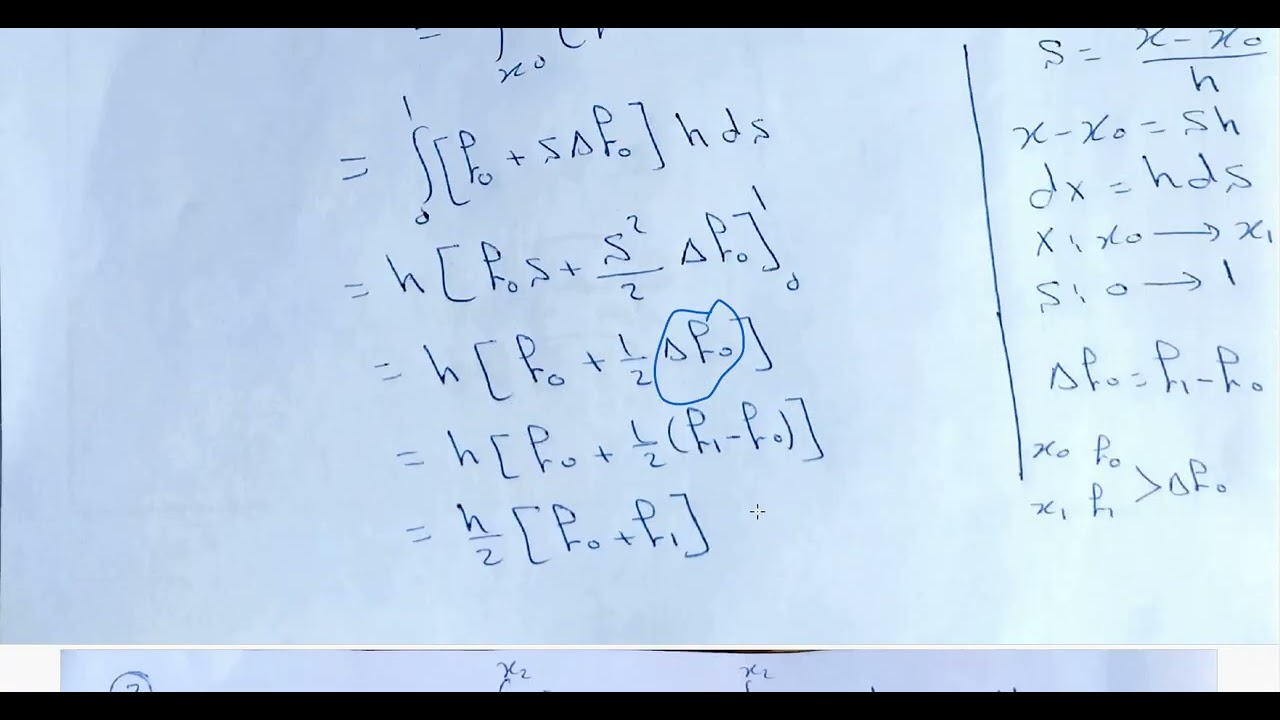 = ∫_{x0} (f
= ∫_0^1 [f₀ + sΔf₀] h ds
= h [f₀s + s²/2 Δf₀]_0^1
= h [f₀ + 1/2 Δf₀]
= h [f₀ + 1/2 (f₁ - f₀)]
= h/2 [f₀ + f₁]
s = (x - x₀)/h
x - x₀ = sh
dx = h ds
x : x₀ → x₁
s : 0 → 1
Δf₀ = f₁ - f₀
x₀ f₀
x₁ f₁ > Δf₀
② x₂ x₂